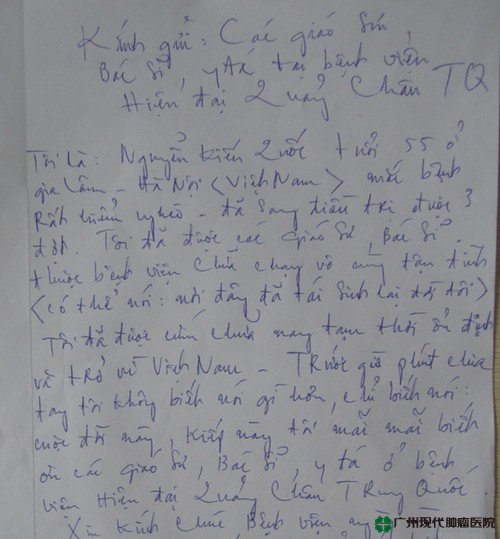 Kính gửi: Các giáo sư,
Bác Sĩ, y tá tại bệnh viện
Hiện đại Quảng Châu TQ
Tôi là: Nguyễn Kiến Quốc tuổi 55 ở
gia lâm - Hà Nội <Việt Nam> mắc bệnh
Rất hiểm nghèo - đã sang điều trị được 3
đợt. Tôi đã được các Giáo Sư, Bác Sĩ
thuộc bệnh viện chữa chạy vô cùng tận tình
<có thể nói: nơi đây đã tái sinh lại đời tôi>
Tôi đã được cứu chữa nay tạm thời ổn định
và trở về Việt Nam - Trước giờ phút chia
tay tôi không biết nói gì hơn, chỉ biết nói:
cuộc đời này, kiếp này tôi mãi mãi biết
ơn các giáo sư, Bác Sĩ, y tá ở bệnh
viện Hiện đại Quảng Châu Trung Quốc.
Xin Kính Chúc Bệnh viện
广州现代肿瘤医院